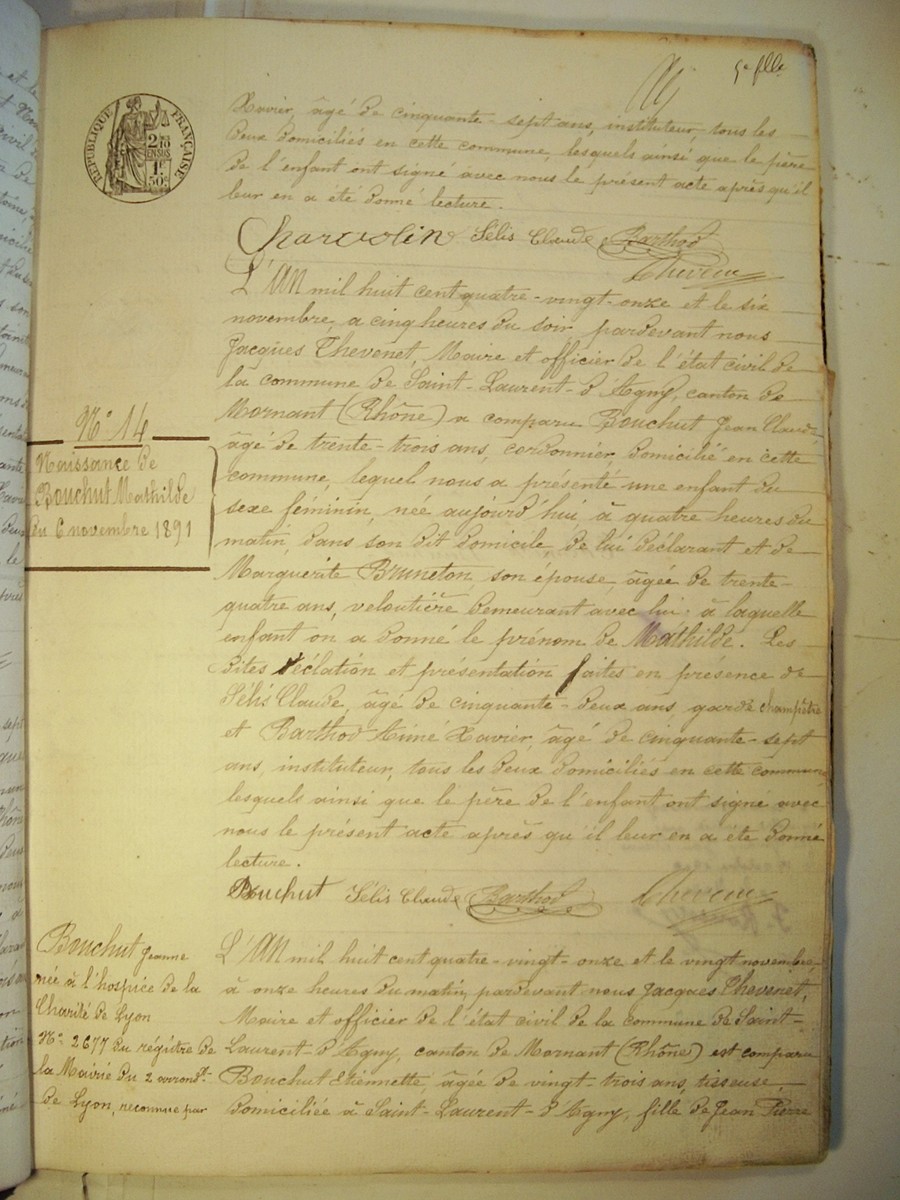 5e flle
RÉPUBLIQUE FRANÇAISE
2/10
EN SUS
1F
50c
Xavier, âgé de cinquante-sept ans, instituteur, tous les
deux domiciliés en cette commune, lesquels ainsi que le père
de l'enfant ont signé avec nous le présent acte après qu'il
leur en a été donné lecture.
Charvolin Sélis Claude Barthod
Chevenet
L'AN mil huit cent quatre-vingt-onze et le six
novembre, a cinq heures du soir pardevant nous
Jacques Chevenet, Maire et officier de l'état civil de
la commune de Saint-Laurent-d'Agny, canton de
Mornant (Rhône) a comparu Bouchut Jean Claude
âgé de trente-trois ans, cordonnier, domicilié en cette
commune, lequel nous a présenté une enfant du
sexe féminin, née aujourd'hui, à quatre heures du
matin, dans son dit domicile, de lui déclarant et de
Marguerite Bruneton, son épouse, âgée de trente-
quatre ans, veloutière demeurant avec lui; à laquelle
enfant on a donné le prénom de Mathilde. Les
dites déclation et présentation faites en présence de
Sélis Claude, âgé de cinquante-deux ans, garde champêtre
et Barthod Aimé Xavier, âgé de cinquante-sept
ans, instituteur, tous les deux domiciliés en cette commune
lesquels ainsi que le père de l'enfant ont signé avec
nous le présent acte après qu'il leur en a été donné
lecture.
Bouchut Sélis Claude Barthod Chevenet
No 14
Naissance de
Bouchut Mathilde
du 6 novembre 1891
L'AN mil huit cent quatre-vingt-onze et le vingt novembre,
à onze heures du matin, pardevant nous Jacques Chevenet,
Maire et officier de l'état civil de la commune de Saint-
Laurent-d'Agny, canton de Mornant (Rhône) est comparu
Bouchut Etiennette, âgée de vingt-trois ans, tisseuse,
domiciliée à Saint-Laurent-d'Agny, fille de Jean Pierre
Bouchut Jeanne
née à l'hospice de la
Charité de Lyon
No 2677 du régitre de
la Mairie du 2 arrondt
de Lyon, reconnue par